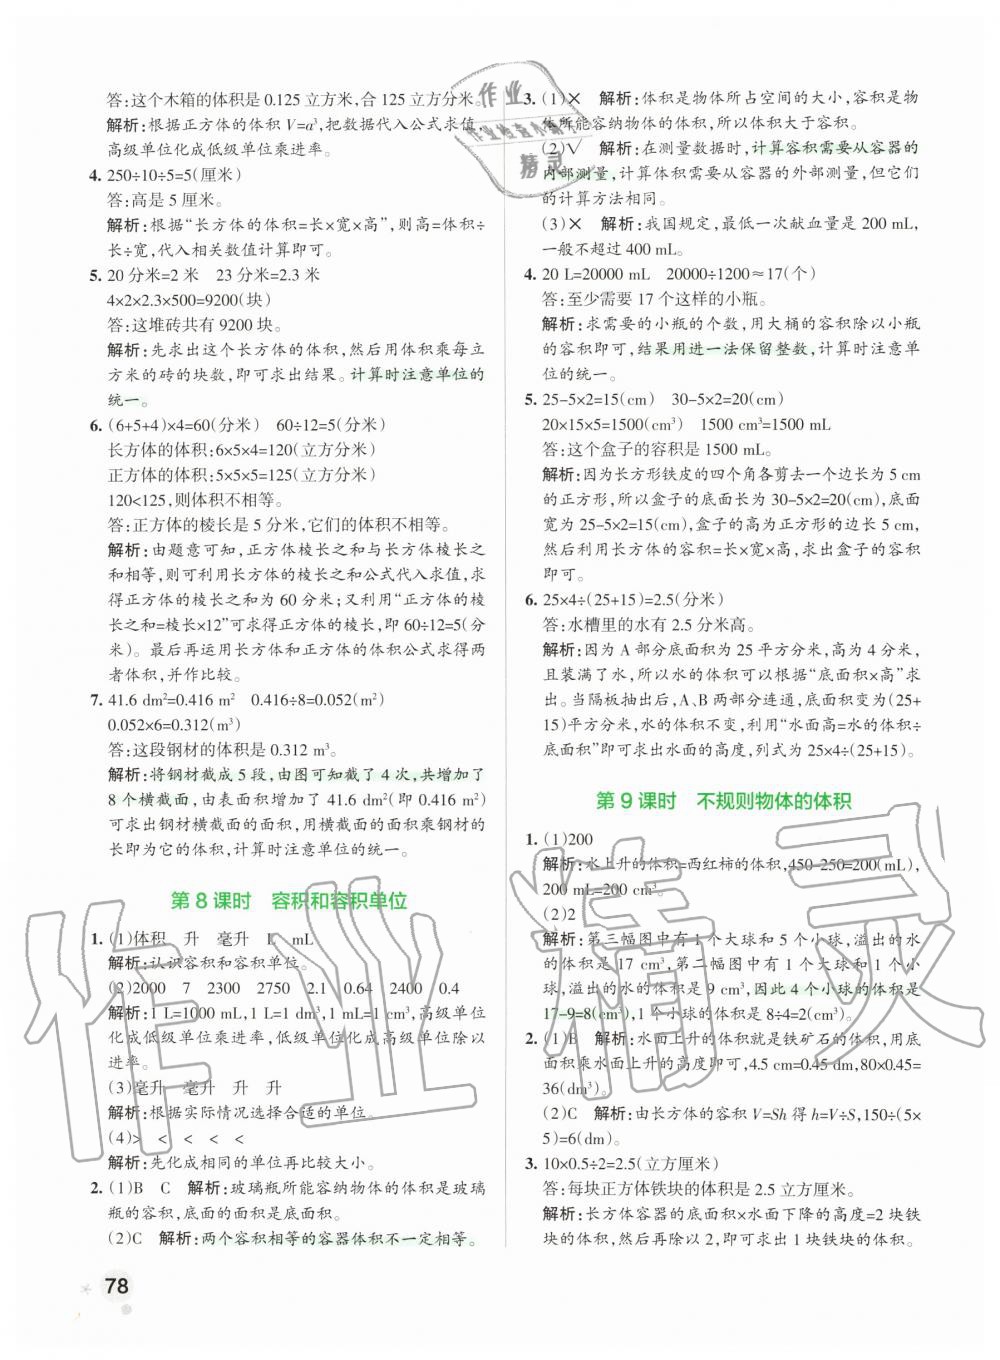 答:这个木箱的体积是 0.125 立方米,合 125 立方分米。
解析:根据正方体的体积 V=a³,把数据代入公式求值,
高级单位化成低级单位乘进率。
4. 250÷10÷5=5(厘米)
答:高是 5 厘米。
解析:根据“长方体的体积=长×宽×高”,即高=体积÷
长÷宽,代入相关数值计算即可。
5. 20 分米=2 米　23 分米=2.3 米
4×2×2.3×500=9200(块)
答:这堆砖共有 9200 块。
解析:先求出这个长方体的体积,然后用体积乘每立
方米的砖的块数,即可求出结果。计算时注意单位的
统一。
6. (6+5+4)×4=60(分米)　60÷12=5(分米)
长方体的体积:6×5×4=120(立方分米)
正方体的体积:5×5×5=125(立方分米)
120<125,则体积不相等。
答:正方体的棱长是 5 分米,它们的体积不相等。
解析:由题意可知,正方体棱长之和与长方体棱长之
和相等,则可利用长方体的棱长之和公式代入求值,求
得正方体的棱长之和为 60 分米;又利用“正方体的棱
长之和=棱长×12”可求得正方体的棱长,即 60÷12=5(分
米)。最后再运用长方体和正方体的体积公式求得两
者体积,并作比较。
7. 41.6 dm²=0.416 m²　0.416÷8=0.052(m²)
0.052×6=0.312(m³)
答:这段钢材的体积是 0.312 m³。
解析:将钢材截成 5 段,由图可知截了 4 次,共增加了
8 个横截面,由表面积增加了 41.6 dm²(即 0.416 m²)
可求出钢材横截面的面积,用横截面的面积乘钢材的
长即为它的体积,计算时注意单位的统一。
第 8 课时　容积和容积单位
1. (1)体积　升　毫升　L　mL
解析:认识容积和容积单位。
(2)2000　7　2300　2750　2.1　0.64　2400　0.4
解析:1 L=1000 mL,1 L=1 dm³,1 mL=1 cm³,高级单位
化成低级单位乘进率,低级单位化成高级单位除以
进率。
(3)毫升　毫升　升　升
解析:根据实际情况选择合适的单位。
(4)>　<　<　<　<
解析:先化成相同的单位再比较大小。
2. (1)B　C　解析:玻璃瓶所能容纳物体的体积是玻璃
瓶的容积,底面的面积是底面积。
(2)C　解析:两个容积相等的容器体积不一定相等。
78
3. (1)×　解析:体积是物体所占空间的大小,容积是物
体所能容纳物体的体积,所以体积大于容积。
(2)√　解析:在测量数据时,计算容积需要从容器的
内部测量,计算体积需要从容器的外部测量,但它们
的计算方法相同。
(3)×　解析:我国规定,最低一次献血量是 200 mL,
一般不超过 400 mL。
4. 20 L=20000 mL　20000÷1200≈17(个)
答:至少需要 17 个这样的小瓶。
解析:求需要的小瓶的个数,用大桶的容积除以小瓶
的容积即可,结果用进一法保留整数,计算时注意单
位的统一。
5. 25-5×2=15(cm)　30-5×2=20(cm)
20×15×5=1500(cm³)　1500 cm³=1500 mL
答:这个盒子的容积是 1500 mL。
解析:因为长方形铁皮的四个角各剪去一个边长为 5 cm
的正方形,所以盒子的底面长为 30-5×2=20(cm),底面
宽为 25-5×2=15(cm),盒子的高为正方形的边长 5 cm,
然后利用长方体的容积=长×宽×高,求出盒子的容积
即可。
6. 25×4÷(25+15)=2.5(分米)
答:水槽里的水有 2.5 分米高。
解析:因为 A 部分底面积为 25 平方分米,高为 4 分米,
且装满了水,所以水的体积可以根据“底面积×高”求
出。当隔板抽出后,A、B 两部分连通,底面积变为(25+
15)平方分米,水的体积不变,利用“水面高=水的体积÷
底面积”即可求出水面的高度,列式为 25×4÷(25+15)。
第 9 课时　不规则物体的体积
1. (1)200
解析:水上升的体积=西红柿的体积,450-250=200(mL),
200 mL=200 cm³。
(2)2
解析:第三幅图中有 1 个大球和 5 个小球,溢出的水
的体积是 17 cm³,第二幅图中有 1 个大球和 1 个小
球,溢出的水的体积是 9 cm³,因此 4 个小球的体积是
17-9=8(cm³),1 个小球的体积是 8÷4=2(cm³)。
2. (1)B　解析:水面上升的体积就是铁矿石的体积,用底
面积乘水面上升的高度即可,4.5 cm=0.45 dm,80×0.45=
36(dm³)。
(2)C　解析:由长方体的容积 V=Sh 得 h=V÷S,150÷(5×
5)=6(dm)。
3. 10×0.5÷2=2.5(立方厘米)
答:每块正方体铁块的体积是 2.5 立方厘米。
解析:长方体容器的底面积×水面下降的高度=2 块铁
块的体积,然后再除以 2,即可求出 1 块铁块的体积。
作业
精灵
作业精灵